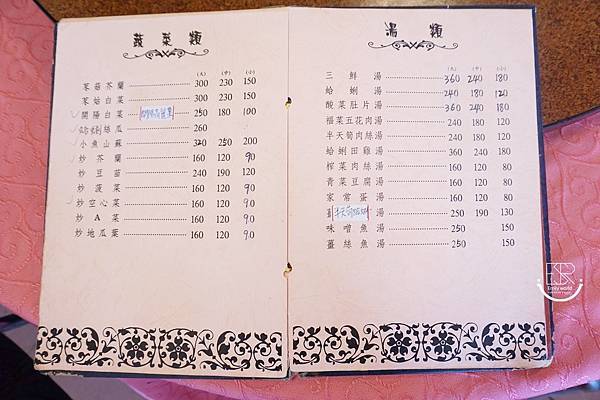 蔬菜類
(大) (中) (小)
草菇芥蘭 300 230 150
草菇白菜 300 230 150
開陽白菜 250 180 100
絲瓜 260
小魚山蘇 320 250 200
炒芥蘭 160 120 90
炒豆苗 240 190 120
炒菠菜 160 120 90
炒空心菜 160 120 90
炒A菜 160 120 90
炒地瓜葉 160 120 90
湯類
(大) (中) (小)
三鮮湯 360 240 180
蛤蜊湯 240 180 120
酸菜肚片湯 360 240 180
福菜五花肉湯 240 180 120
半天筍肉絲湯 240 180 120
蛤蜊田雞湯 360 240 180
榨菜肉絲湯 160 120 80
青菜豆腐湯 160 120 80
家常蛋湯 160 120 80
湯 250 190 130
味噌魚湯 250 150
薑絲魚湯 250 150
Emily world